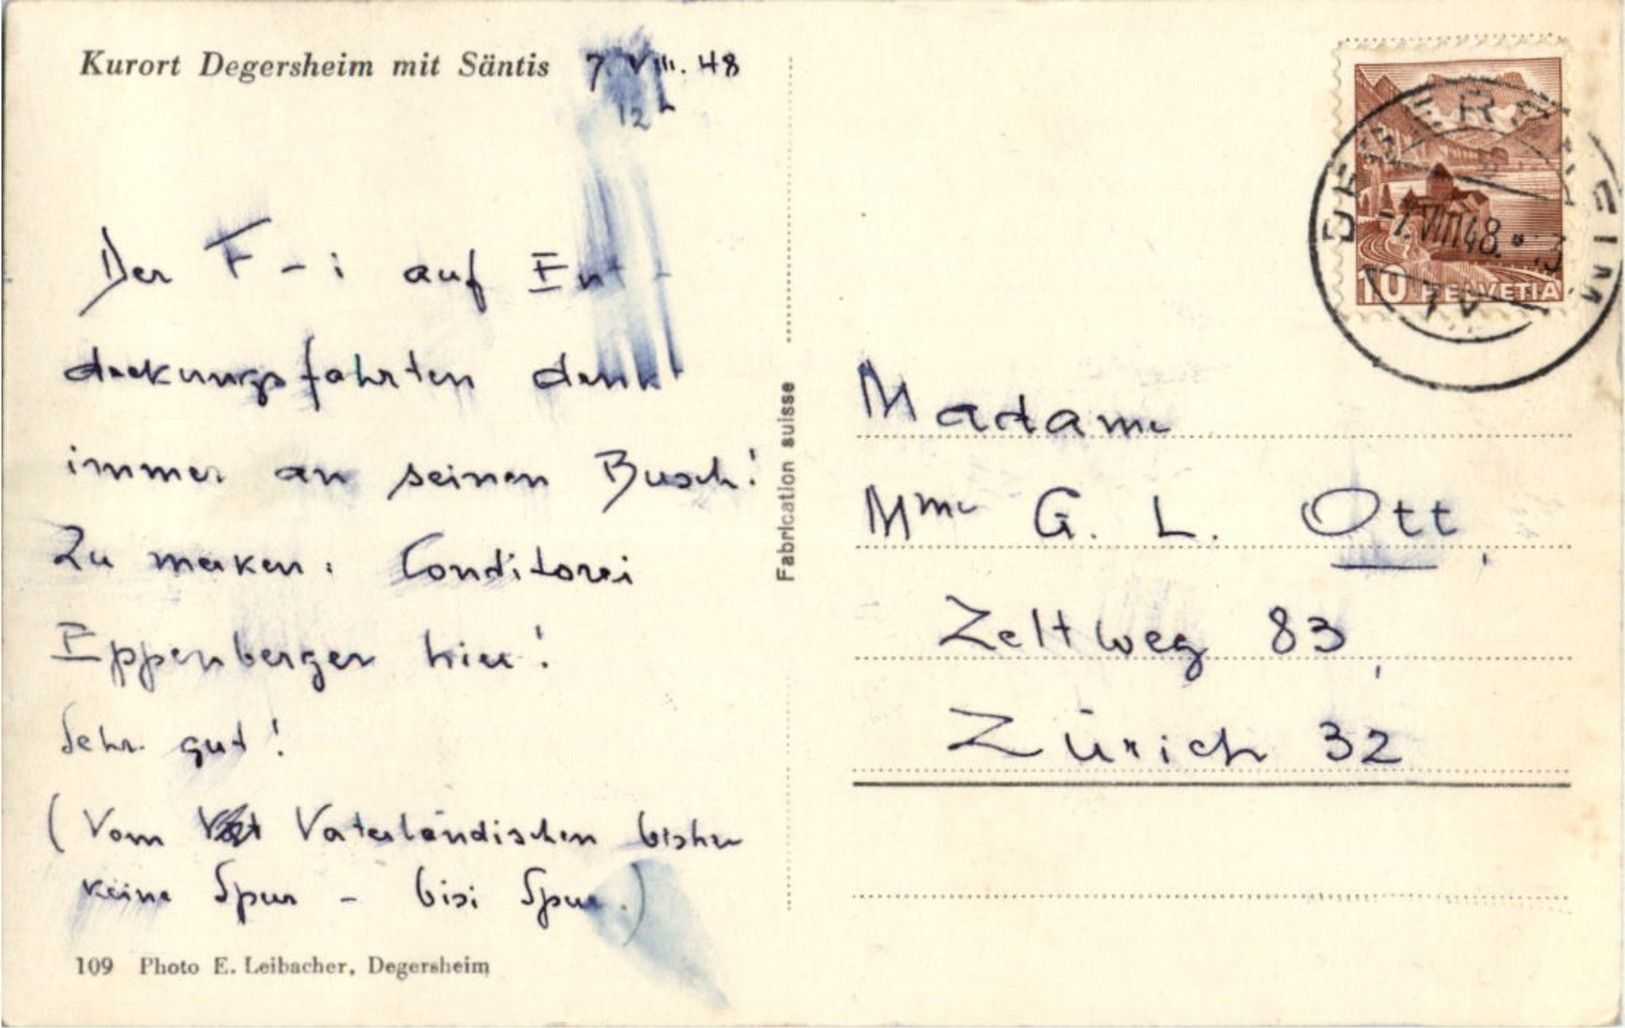 Kurort Degersheim mit Säntis 7. VIII. 48
12 h
Der F - i auf Ent -
deckungsfahrten denkt
immer an seinen Busch!
Zu merken: Conditorei
Eppenberger hier!
Sehr gut!
(Vom Vaterländischen bisher
keine Spur - bisi Spur.)
109 Photo E. Leibacher, Degersheim
Fabrication suisse
DEGERSHEIM
-7.VIII.48.
10 HELVETIA
Madame
Mme G. L. Ott,
Zeltweg 83,
Zürich 32